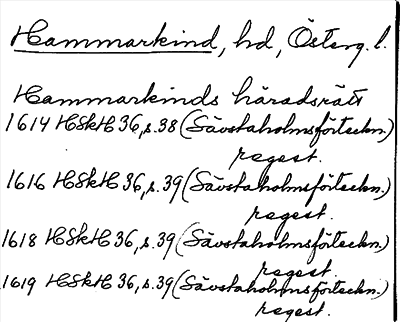 Hammarkind, hd, Österg. l.
Hammarkinds häradsrätt
1614 HSkH 36, s. 38 (Sävstaholmsförteckn.)
regest.
1616 HSkH 36, s. 39 (Sävstaholmsförteckn.)
regest.
1618 HSkH 36, s. 39 (Sävstaholmsförteckn.)
regest.
1619 HSkH 36, s. 39 (Sävstaholmsförteckn.)
regest.